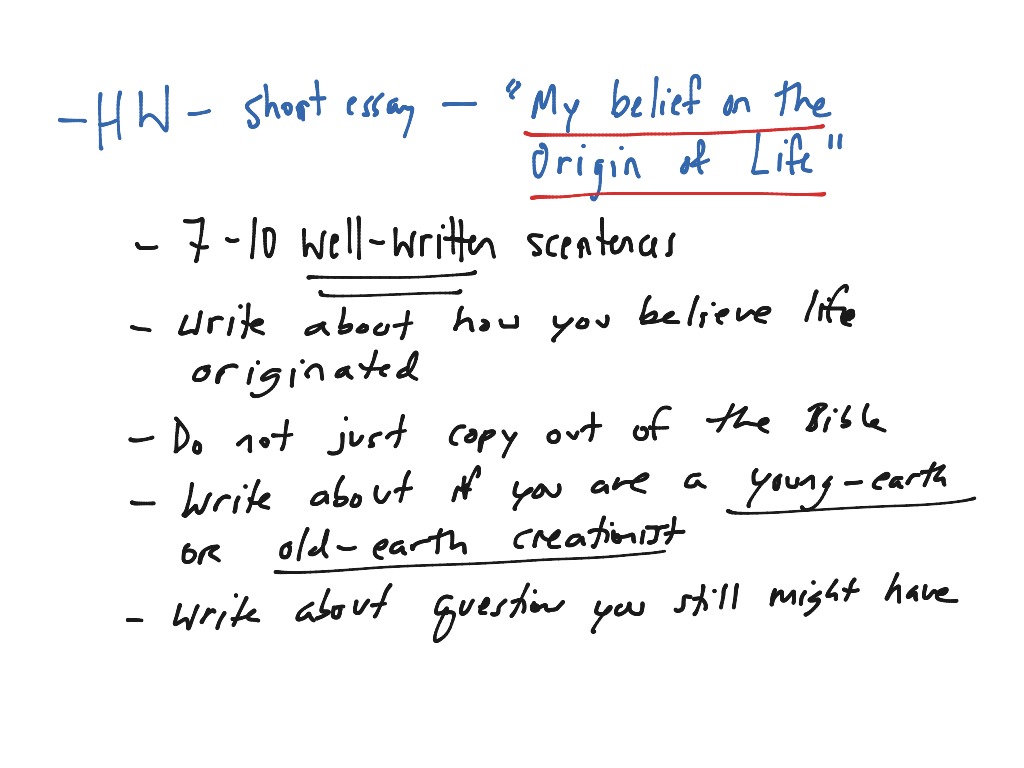 - HW - short essay - "My belief on the
Origin of Life"
- 7-10 well-written scentences
- Write about how you believe life
originated
- Do not just copy out of the Bible
- Write about if you are a young-earth
or old-earth creationist
- Write about question you still might have